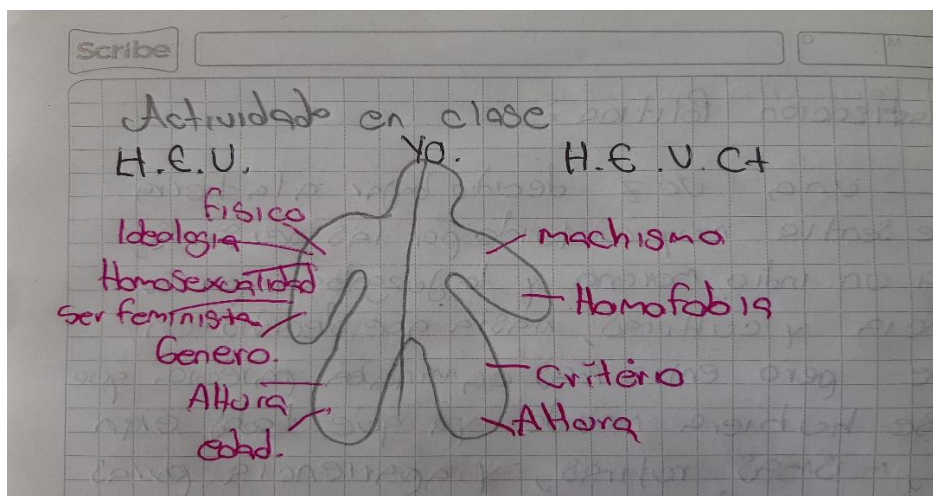 Scribe
Actividade en clase
H.E.U.
Yo.
H.E.U.C+
fisico
Ideologia
Homosexualidad
Ser feminista
Genero.
Altura
edad.
machismo
Homofobia
Critério
Altura